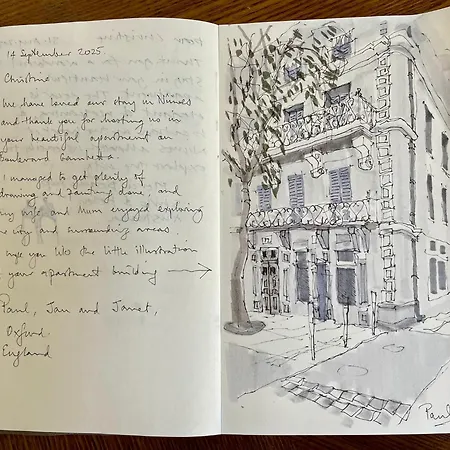 14 September 2025
Christine
We have loved our stay in Nimes
and thank you for hosting us in
your beautiful apartment on
Boulevard Gambetta.
I managed to get plenty of
drawing and painting done, and
my wife and Mum enjoyed exploring
the city and surrounding areas.
hope you like the little illustration
your apartment building →
Paul, Jan and Janet,
Oxford
England
Paul